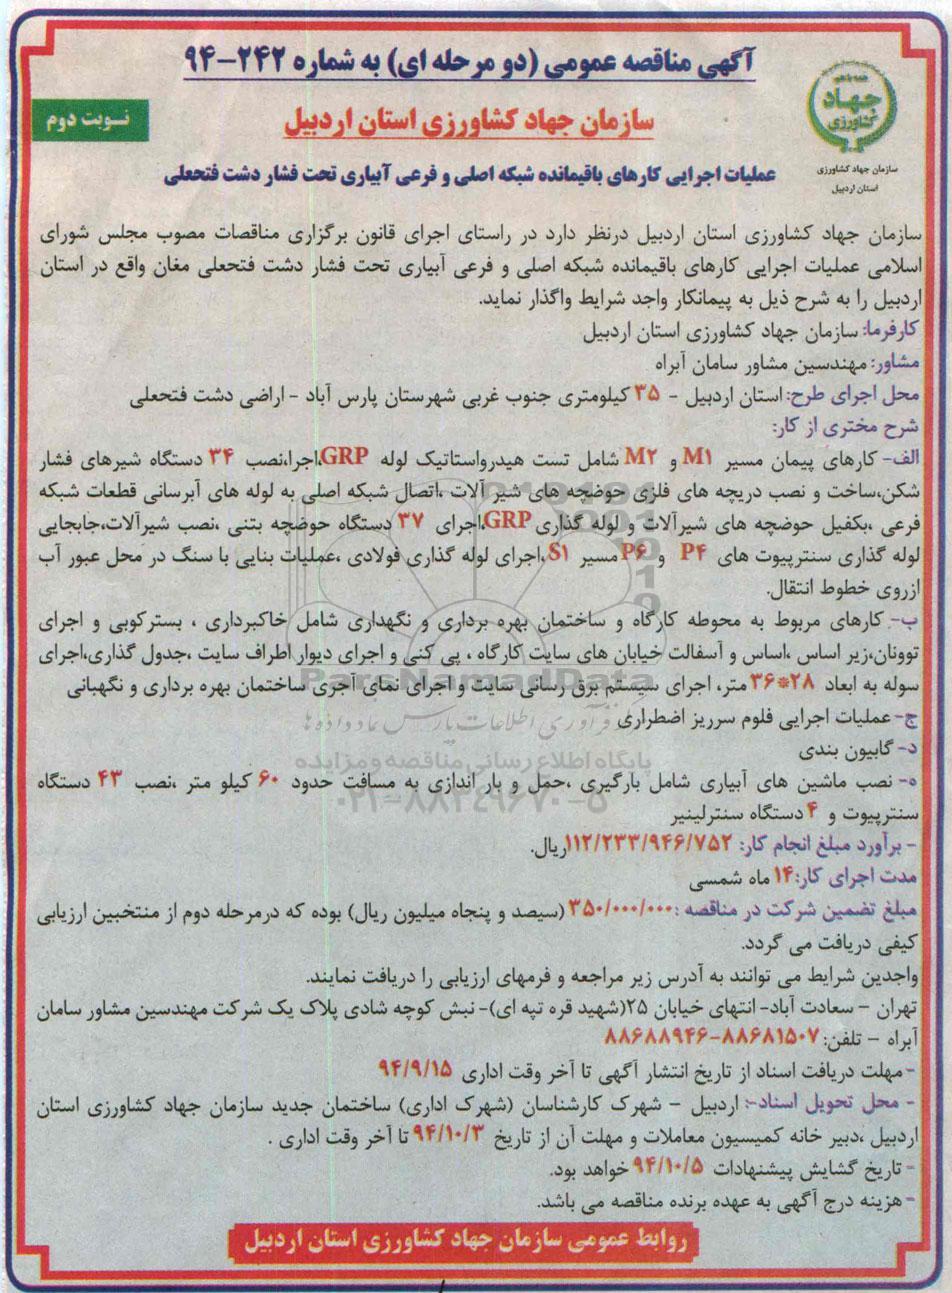 آگهی مناقصه عمومی (دو مرحله ای) به شماره ۲۴۲-۹۴
جهاد کشاورزی
سازمان جهاد کشاورزی
استان اردبیل
نوبت دوم
سازمان جهاد کشاورزی استان اردبیل
عملیات اجرایی کارهای باقیمانده شبکه اصلی و فرعی آبیاری تحت فشار دشت فتحعلی
سازمان جهاد کشاورزی استان اردبیل درنظر دارد در راستای اجرای قانون برگزاری مناقصات مصوب مجلس شورای
اسلامی عملیات اجرایی کارهای باقیمانده شبکه اصلی و فرعی آبیاری تحت فشار دشت فتحعلی مغان واقع در استان
اردبیل را به شرح ذیل به پیمانکار واجد شرایط واگذار نماید.
کارفرما: سازمان جهاد کشاورزی استان اردبیل
مشاور: مهندسین مشاور سامان آبراه
محل اجرای طرح: استان اردبیل - ۳۵ کیلومتری جنوب غربی شهرستان پارس آباد - اراضی دشت فتحعلی
شرح مختری از کار:
الف- کارهای پیمان مسیر M۱ و M۲ شامل تست هیدرواستاتیک لوله GRP،اجرا،نصب ۳۴ دستگاه شیرهای فشار
شکن،ساخت و نصب دریچه های فلزی حوضچه های شیر آلات ،اتصال شبکه اصلی به لوله های آبرسانی قطعات شبکه
فرعی ،بکفیل حوضچه های شیرآلات و لوله گذاری GRP،اجرای ۳۷ دستگاه حوضچه بتنی ،نصب شیرآلات،جابجایی
لوله گذاری سنترپیوت های P۴ و P۶ مسیر S۱،اجرای لوله گذاری فولادی ،عملیات بنایی با سنگ در محل عبور آب
ازروی خطوط انتقال.
ب- کارهای مربوط به محوطه کارگاه و ساختمان بهره برداری و نگهداری شامل خاکبرداری ، بسترکوبی و اجرای
توونان،زیر اساس ،اساس و آسفالت خیابان های سایت کارگاه ، پی کنی و اجرای دیوار اطراف سایت ،جدول گذاری،اجرای
سوله به ابعاد ۲۸*۳۶ متر، اجرای سیستم برق رسانی سایت و اجرای نمای آجری ساختمان بهره برداری و نگهبانی
ParsNamadData
ج- عملیات اجرایی فلوم سرریز اضطراری
فرآوری اطلاعات پارس نماد داده ها
د- گابیون بندی
پایگاه اطلاع رسانی مناقصه و مزایده
ه- نصب ماشین های آبیاری شامل بارگیری ،حمل و بار اندازی به مسافت حدود ۶۰ کیلو متر ،نصب ۴۳ دستگاه
۰۲۱-۸۸۳۴۹۶۷۰-۵
سنترپیوت و ۴ دستگاه سنترلینیر
- برآورد مبلغ انجام کار: ۱۱۲/۲۳۳/۹۴۶/۷۵۲ریال.
مدت اجرای کار:۱۴ ماه شمسی
مبلغ تضمین شرکت در مناقصه :۳۵۰/۰۰۰/۰۰۰ (سیصد و پنجاه میلیون ریال) بوده که درمرحله دوم از منتخبین ارزیابی
کیفی دریافت می گردد.
واجدین شرایط می توانند به آدرس زیر مراجعه و فرمهای ارزیابی را دریافت نمایند.
تهران - سعادت آباد- انتهای خیابان ۲۵(شهید قره تپه ای)- نبش کوچه شادی پلاک یک شرکت مهندسین مشاور سامان
آبراه - تلفن: ۸۸۶۸۱۵۰۷-۸۸۶۸۸۹۴۶
- مهلت دریافت اسناد از تاریخ انتشار آگهی تا آخر وقت اداری ۹۴/۹/۱۵
- محل تحویل اسناد-: اردبیل - شهرک کارشناسان (شهرک اداری) ساختمان جدید سازمان جهاد کشاورزی استان
اردبیل ،دبیر خانه کمیسیون معاملات و مهلت آن از تاریخ ۹۴/۱۰/۳ تا آخر وقت اداری .
- تاریخ گشایش پیشنهادات ۹۴/۱۰/۵ خواهد بود.
- هزینه درج آگهی به عهده برنده مناقصه می باشد.
روابط عمومی سازمان جهاد کشاورزی استان اردبیل